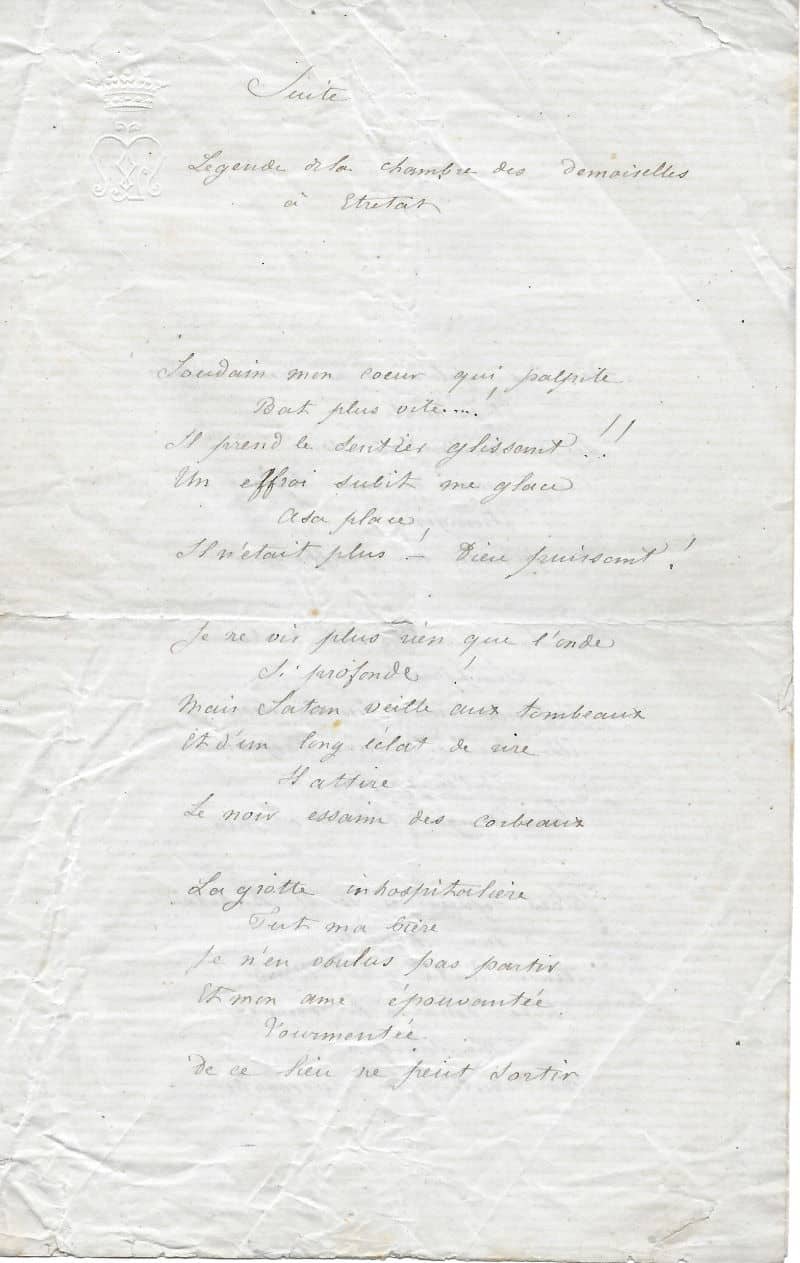 Suite
Legende de la chambre des demoiselles
à Etretat
Soudain mon coeur qui palpite
Bat plus vite....!
Il prend le sentier glissant!!!
Un effroi subit me glace
A sa place
Il n'était plus! – Dieu puissant!
Je ne vis plus rien que l'onde
Si profonde!
Mais Satan veille aux tombeaux
Et d'un long éclat de rire
Il attire
Le noir essaim des corbeaux
La grotte inhospitalière
Fut ma bière
Je n'en voulus pas partir
Et mon ame épouvantée
Tourmentée
De ce lieu ne peut sortir